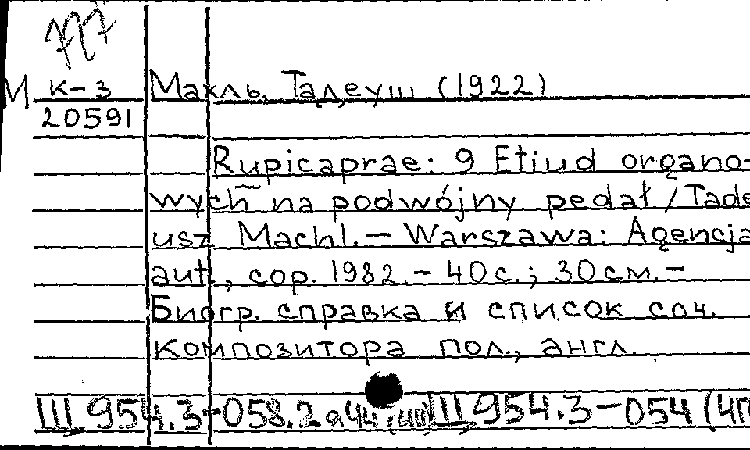 777
М к-3 Махль, Тадеуш (1922)
20591
Rupicaprae: 9 Etiud organo-
wych na podwójny pedał / Tade
usz Machl. — Warszawa: Agencja
aut., cop. 1982. - 40 с.; 30 см. -
Биогр. справка и список соч.
композитора пол., англ.
Ш 954.3-058.2 Ш 954.3-054 (4П